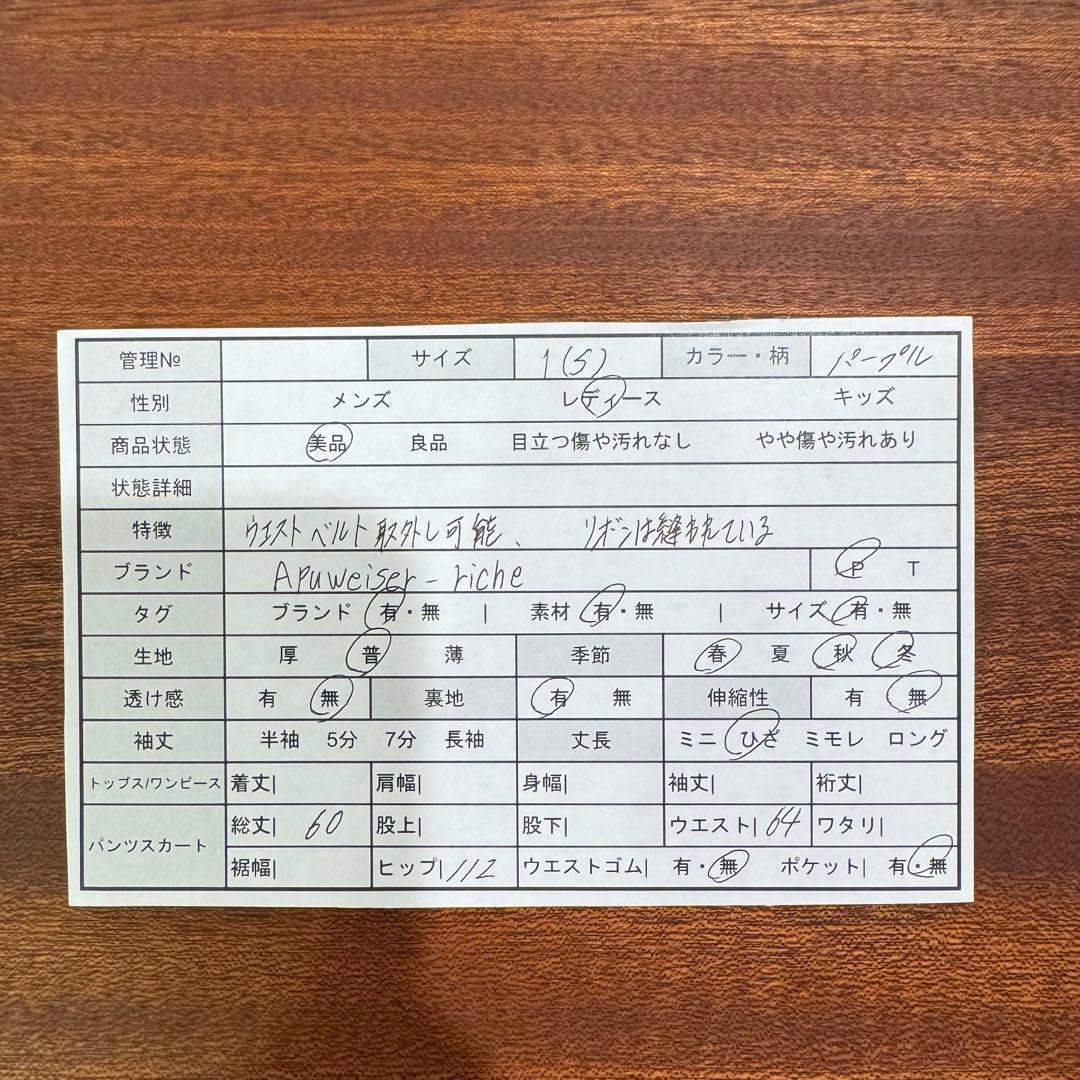 管理№ サイズ 1(S) カラー・柄 パープル
性別 メンズ レディース キッズ
商品状態 美品 良品 目立つ傷や汚れなし やや傷や汚れあり
状態詳細
特徴 ウエストベルト取外し可能、 リボンは縫われている
ブランド Apuweiser-riche P T
タグ ブランド 有・無 | 素材 有・無 | サイズ 有・無
生地 厚 普 薄 季節 春 夏 秋 冬
透け感 有 無 裏地 有 無 伸縮性 有 無
袖丈 半袖 5分 7分 長袖 丈長 ミニ ひざ ミモレ ロング
トップス/ワンピース 着丈| 肩幅| 身幅| 袖丈| 裄丈|
パンツスカート 総丈| 60 股上| 股下| ウエスト| 64 ワタリ|
裾幅| ヒップ| 112 ウエストゴム| 有・無 ポケット| 有・無